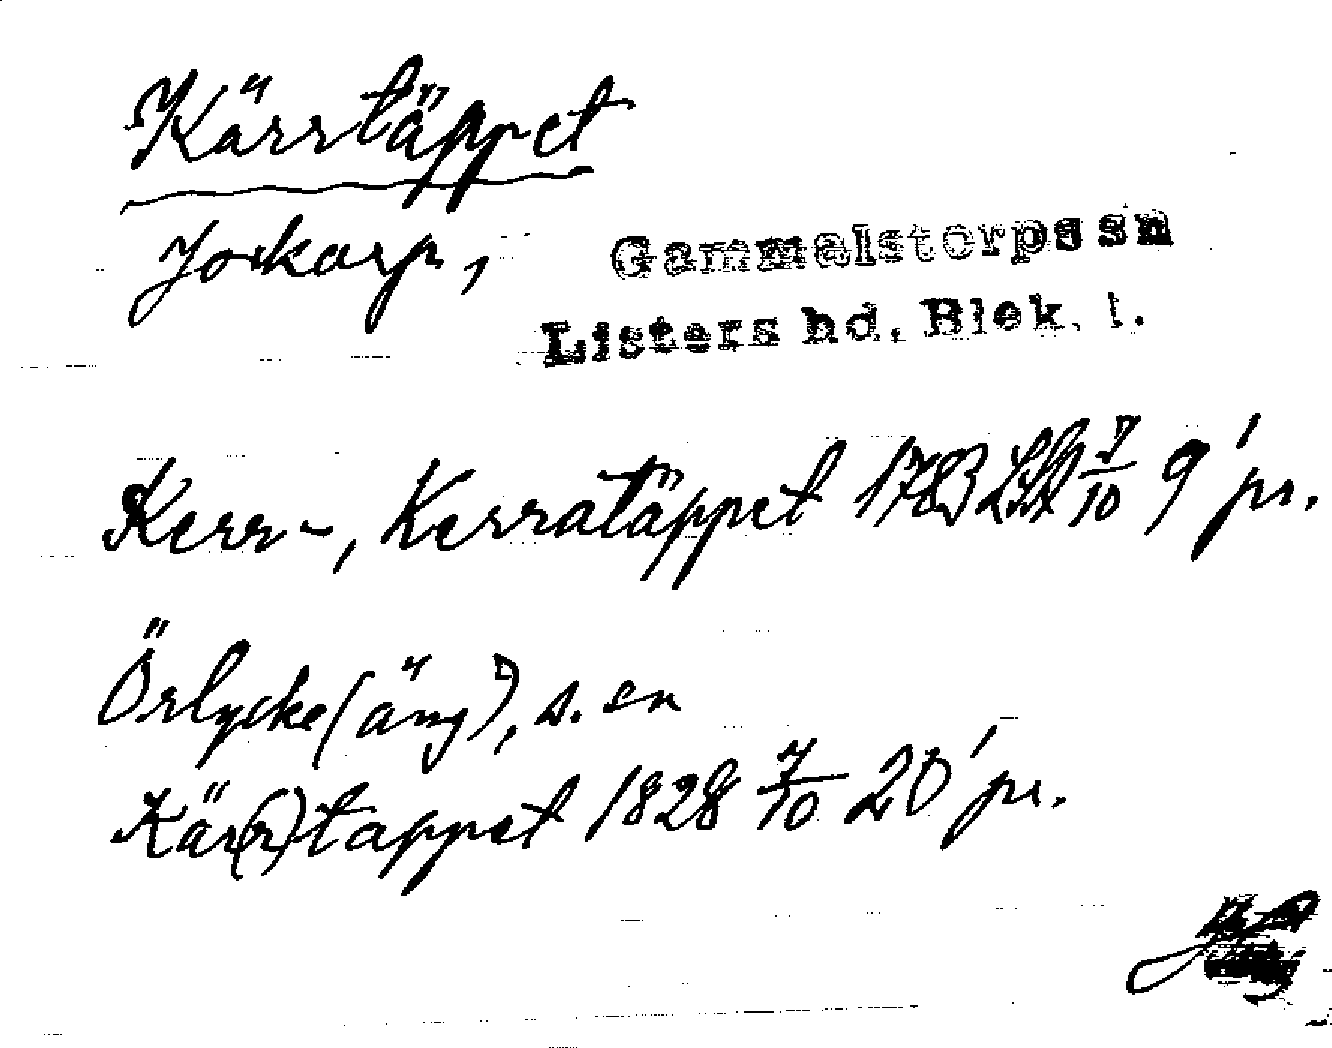 Kärrtäppet
Jockarp, Gammalstorps sn
Listers hd. Blek. l.
Kerr-, Kerratäppet 1783 LSA 7/10 9' pr.
Örlycke (äng), s. en
Kär(r)tappet 1828 7/10 20' pr.